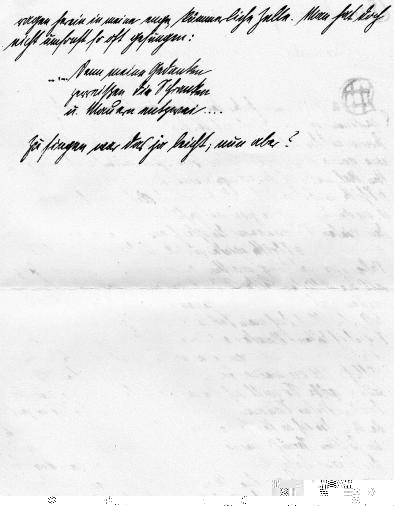 ragen herein in meine enge kümmerliche Zelle. Man hat doch
nicht umsonst so oft gesungen:
.... Denn meine Gedanken
zerreißen die Schranken
u. Mauern entzwei ....
Zu singen war das ja leicht, nun aber?